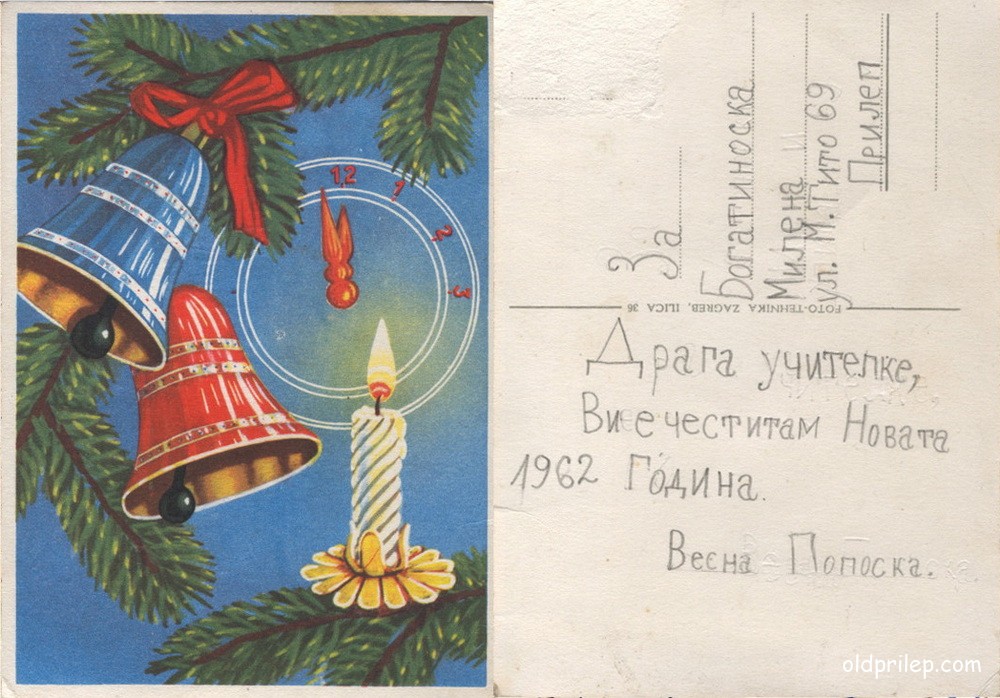 12
1
2
3
За
Богатиноска
Милена
ул. М. Тито 69
Прилеп
FOTO-TEHNIKA ZAGREB, ILICA 36
Драга учителке,
Ви е честитам Новата
1962 Година.
Весна Попоска.
oldprilep.com